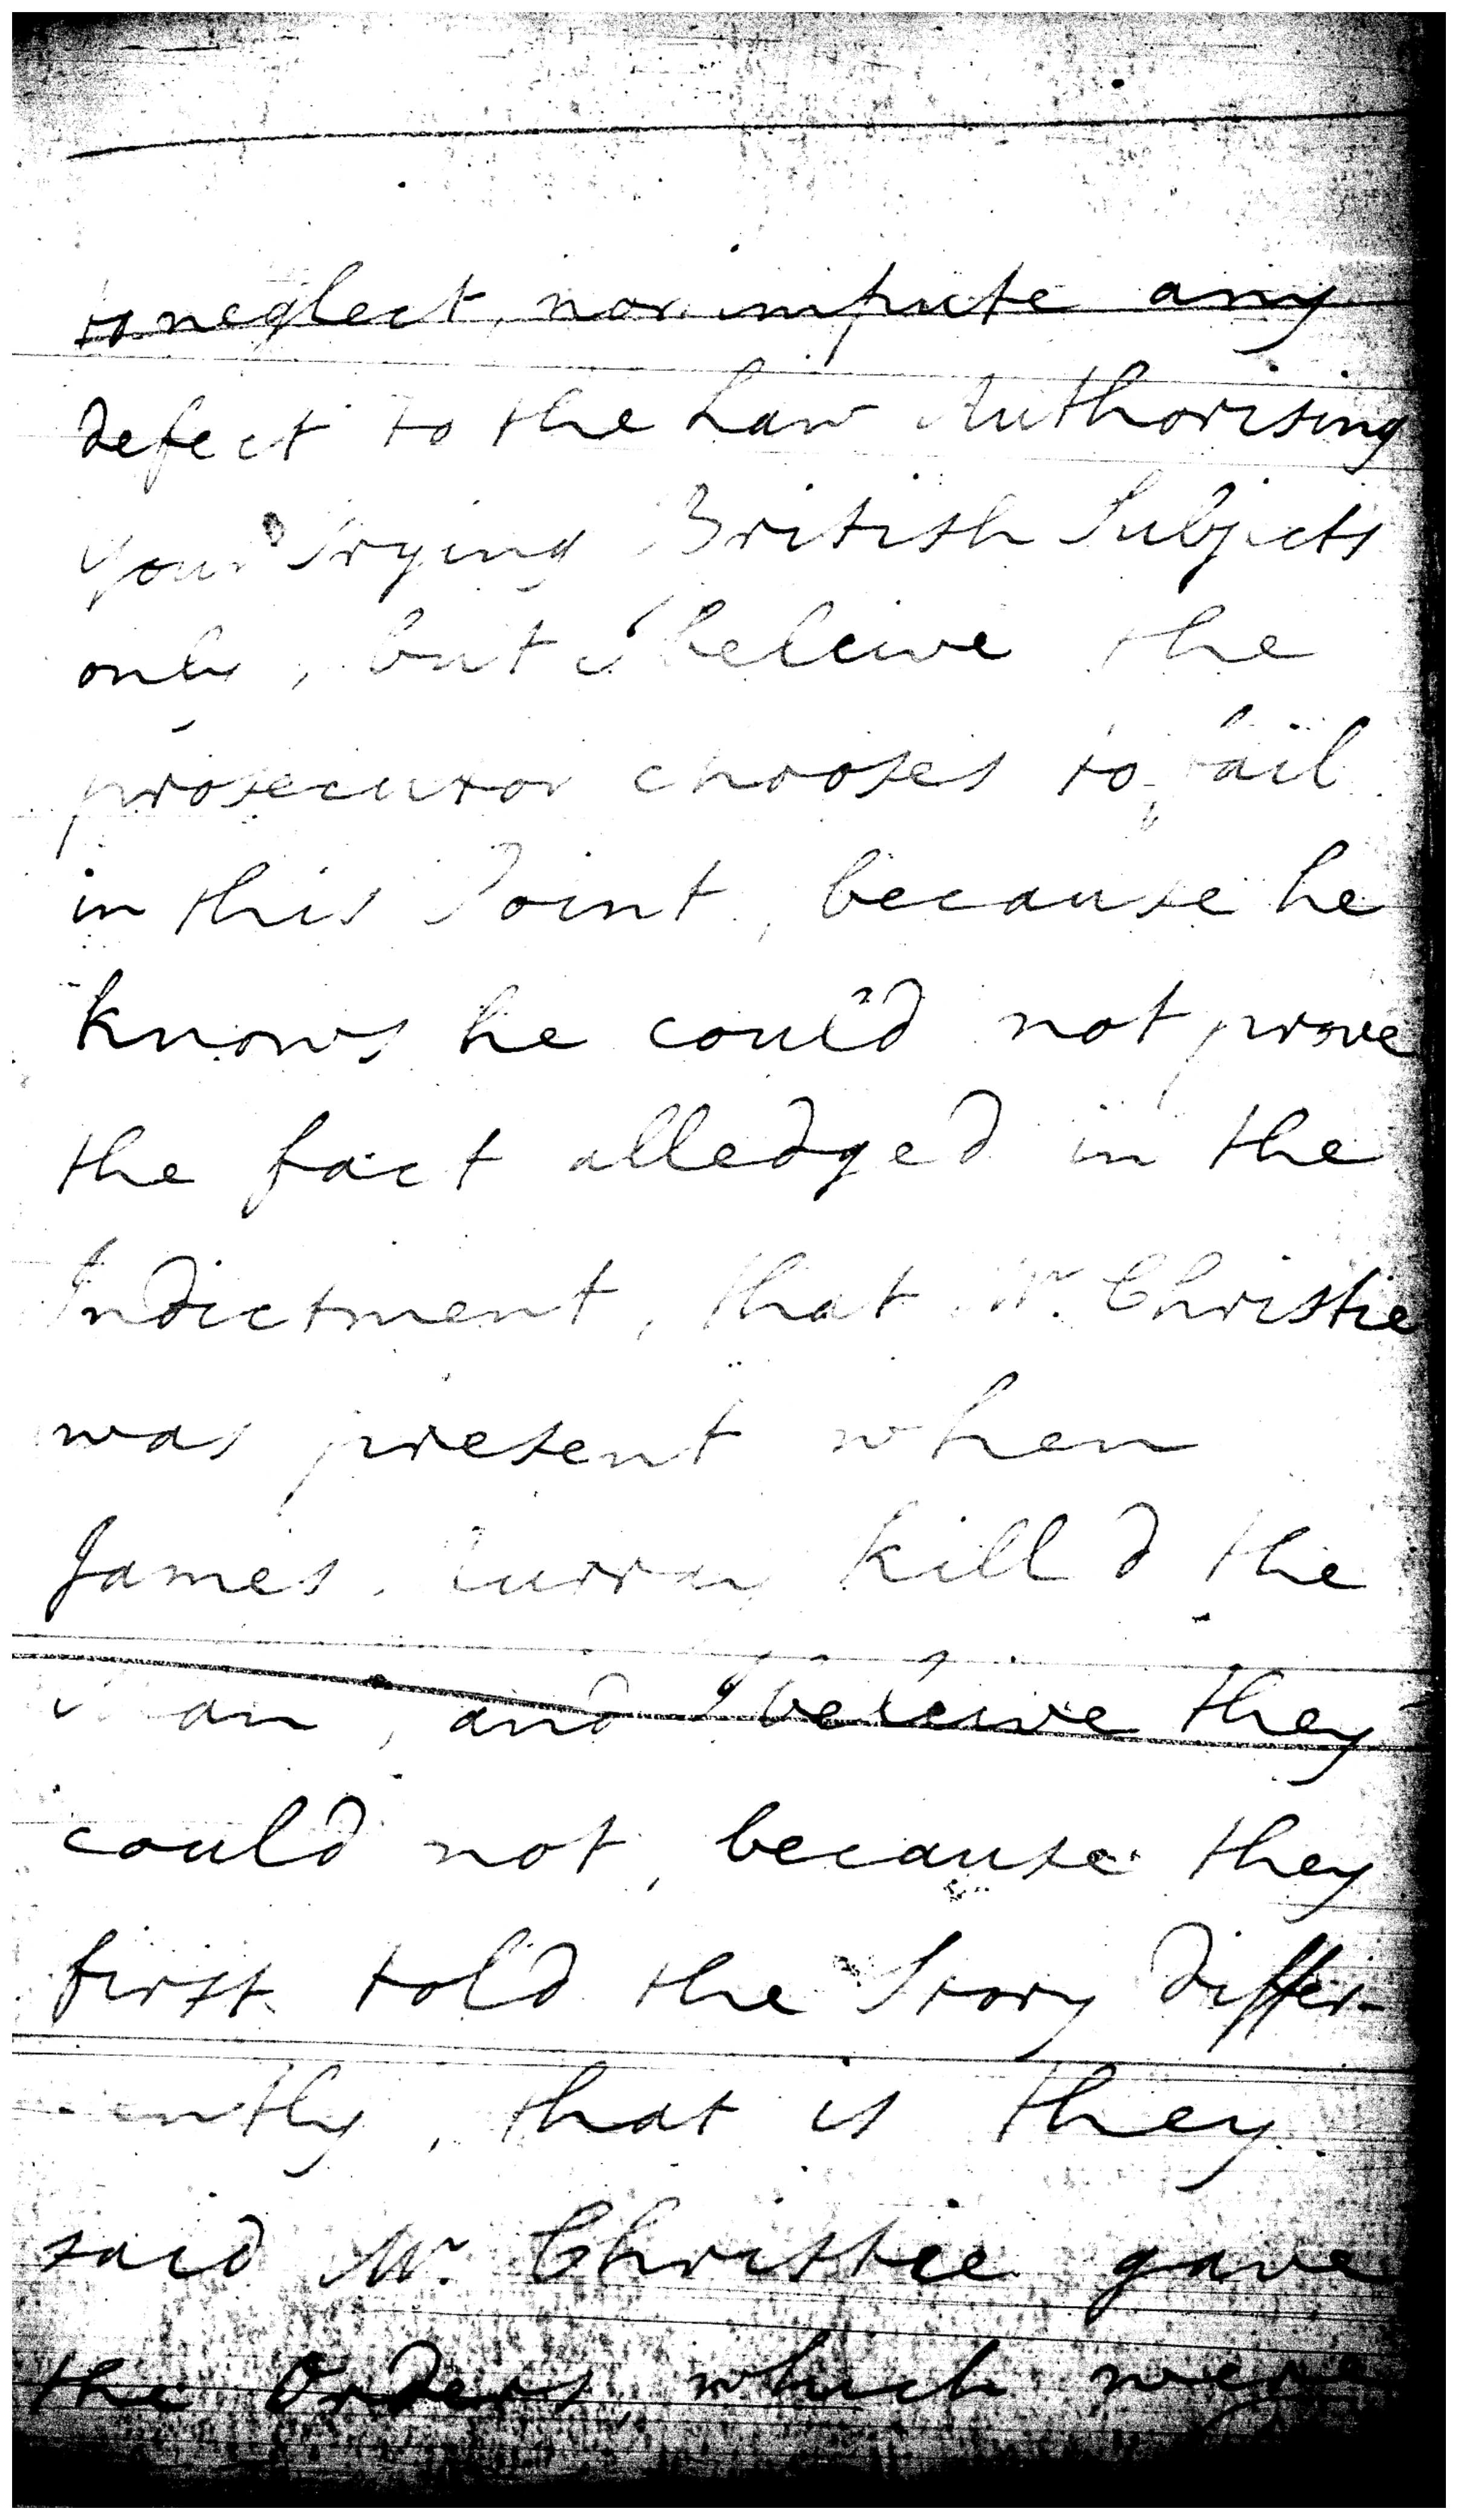 to neglect, nor impute any
defect to the Law Authorising
your Trying British Subjects
only, but I beleive the
prosecutor chooses to fail
in this Point, because he
knows he could not prove
the fact alledged in the
Indictment, that Mr. Christie
was present when
James kill'd the
Man, and I beleive they
could not, because they
first told the Story differ-
-ently, that is they
said Mr. Christie gave
the Orders which were